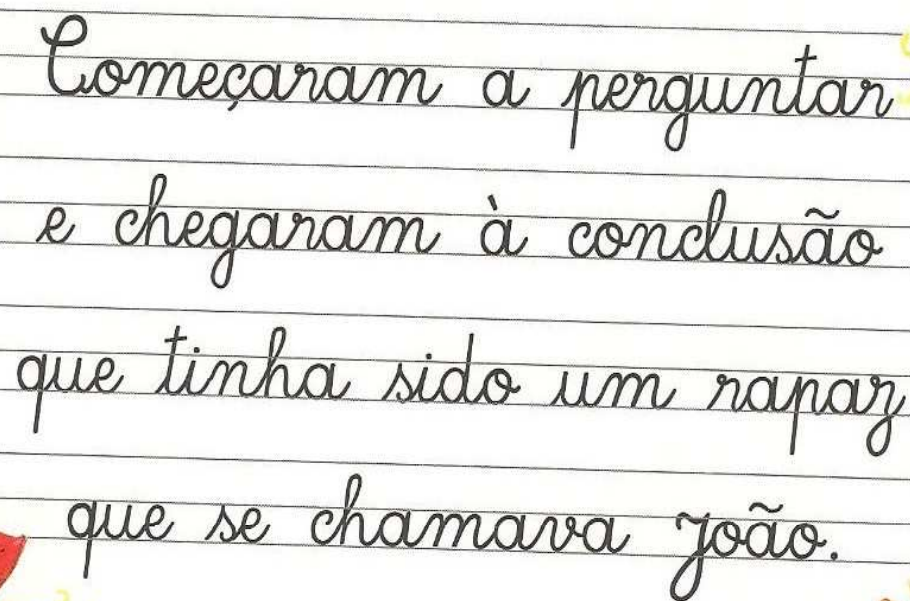 Começaram a perguntar
e chegaram à conclusão
que tinha sido um rapaz
que se chamava João.